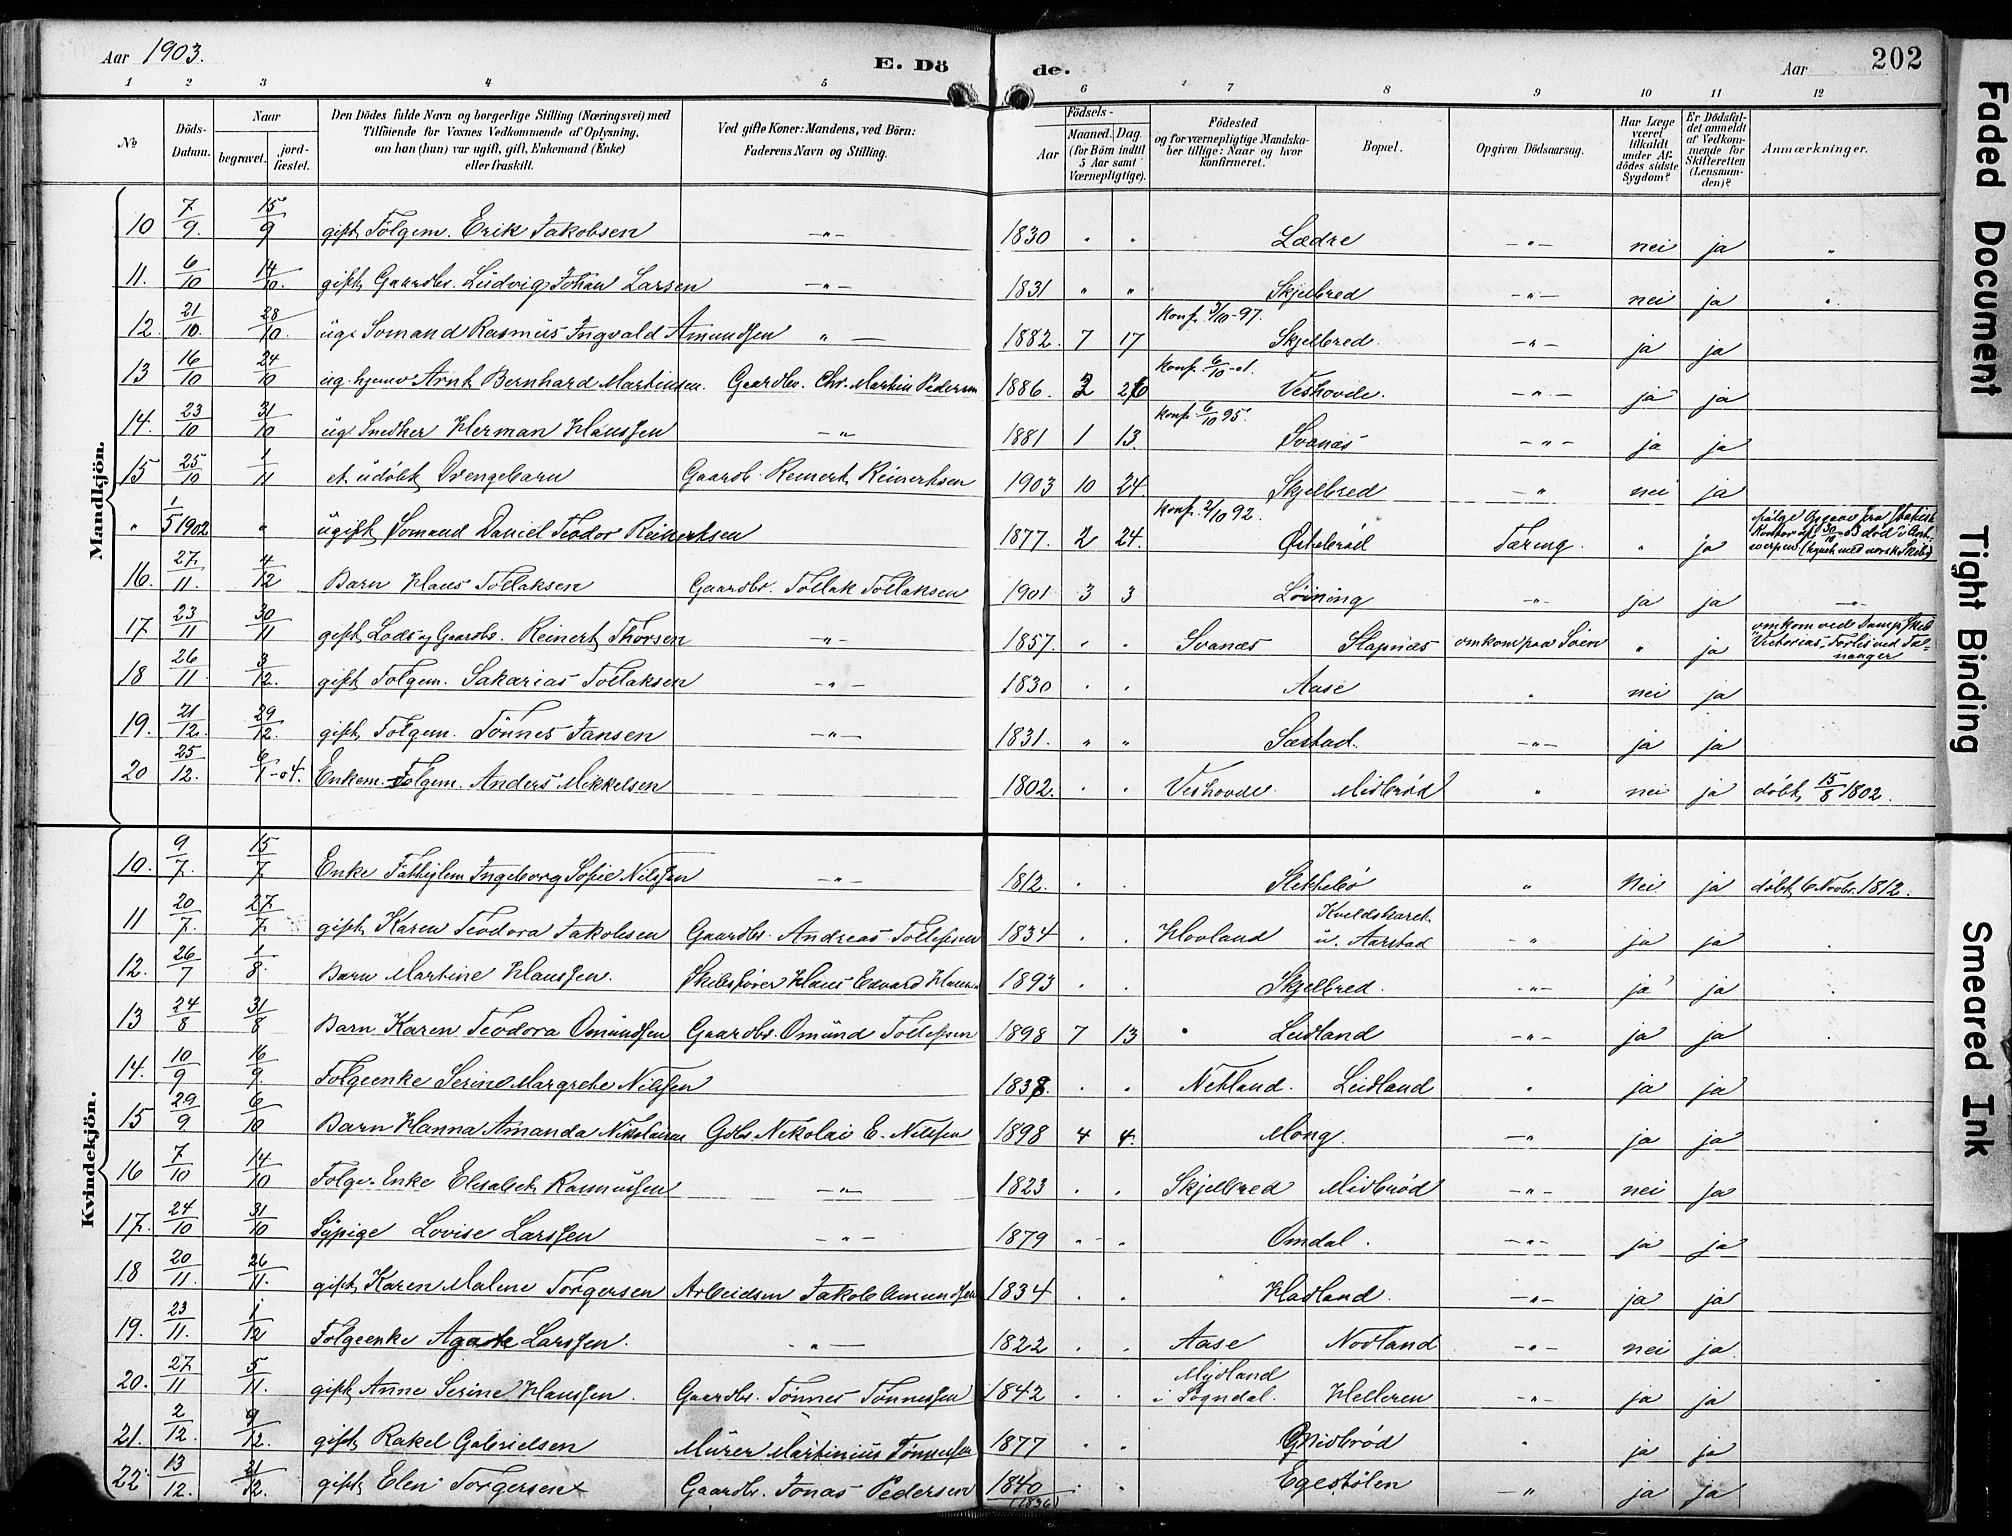 Aar 1903. E. Dö de. Aar 202
1 2 3 4 5 6 7 8 9 10 11 12
№ Döds-Datum. Naar begravet. jord-fæstet. Den Dödes fulde Navn og borgerlige Stilling (Næringsvei) med Tilföiende for Voxnes Vedkommende af Oplysning, om han (hun) var ugift, gift, Enkemand (Enke) eller fraskilt. Ved gifte Koner: Mandens, ved Börn: Faderens Navn og Stilling. Födsels- Aar Maaned. Dag. (for Börn indtil 5 Aar samt Værnepligtige). Födested og for værnepligtige Mandskaber tillige: Naar og hvor konfirmeret. Bopæl. Opgiven Dödsaarsag. Har Læge været tilkaldt under Afdödes sidste Sygdom? Er Dödsfaldet anmeldt af Vedkommende for Skifteretten (Lensmanden)? Anmærkninger.
Mandkjön.
10 7/9. 15/9 gift Folgem. Erik Jakobsen -"- 1830 " " Lædre -"- nei ja "
11. 6/10 14/10. gift Gaardbr. Ludvig Johan Larsen -"- 1831 " " Skjelbred -"- nei ja "
12. 21/10. 28/10. ug. Sömand Rasmus Ingvald Amundsen "- 1882. 7 17 Konf. 3/10-97. Skjelbred. -"- ja ja
13 16/10 24/10 ug. hjemv Arnt Bernhard Martinsen. Gaardbr. Chr. Martin Pedersen 1886. 3 26 Konf. 6/10-01. Veshovde. -"- ja ja
14. 23/10 31/10 ug. Snedker Herman Hanssen -"- 1881 1 13. Konf. 6/10 95. Svanæs -"- ja ja
15 25/10 1/11 et udöbt Drengebarn Gaardb. Reinert Reinertsen 1903 10 24. Skjelbred -"- nei ja
" 1/5 1902 " ugift Sömand Daniel Teodor Reinertsen 1877. 2 24. Konf. 2/10 92. Østebröd Tæring. " ja
16. 27/11. 4/12 Barn Hans Tollaksen Gaardbr. Tollak Tollaksen 1901 3 3 Løining -"- ja ja -"-
17 23/11 30/11 gift Lods og Gaardbr. Reinert Thorsen -"- 1857. " " Svanæs Slagnæs omkom paa Söen " ja omkom ved Dampskib "Victorias" Forlis ved Tananger
18 26/11. 3/12. gift Folgem. Sakarias Tollaksen -"- 1830 " " Aase " nei ja
19. 21/12. 29/12. gift Folgem. Tönnes Jansen -"- 1831. " " Sæstad. -"- ja ja
20 25/12. 6/1-04. Enkem. Folgem. Anders Mikkelsen 1802. " " Veshovde. Midbröd " nei ja döbt 15/8 1802.
Kvindekjön.
10. 9/7. 15/7 Enke Fattiglem Ingeborg Sofie Nilssen -"- 1812. " " Slettebö " Nei ja döbt 6 Novbr. 1812.
11 20/7. 27/7. gift Karen Teodora Jakobsen Gaardbr. Andreas Tollefsen 1834 " " Hovland Kveldstraret u. Aarstad " ja ja
12. 26/7 1/8. Barn Martine Hanssen. Skibsförer Hans Edvard Hansen 1893 " " Skjelbred. -"- ja ja
13 24/8 31/8 Barn Karen Teodora Omundsen Gaardbr. Omund Tollefsen 1898 7 13 Leidland -"- ja ja
14. 10/9 16/9. Folgeenke Serine Margrethe Nilssen 1838. " " Netland. Leidland " ja ja
15 29/9 6/10 Barn Hanna Amanda Nikolaisen Gdbr. Nikolai E. Nilssen 1898 4 4. Mong. -"- ja ja
16 7/10 14/10 Folge. Enke Elisabet Rasmussen -"- 1823 " " Skjelbred Midbröd -"- nei ja
17. 24/10 31/10 Sypige Lovise Larssen -"- 1879 " " Omdal. -"- ja ja
18 20/11. 26/11. gift Karen Malene Torgersen Arbeidsm Jakob Amundsen 1834 " " Hadland. -"- ja ja
19. 23/11. 1/12 Folgeenke Agate Larssen. -"- 1822 " " Aase Nodland -"- nei ja
20. 27/11 5/11. gift Anne Serine Hanssen. Gaardbr. Tönnes Tönnessen 1842 " " Mydland i Sogndal. Helleren -"- ja ja
21. 2/12. 9/12. gift Rakel Gabrielsen Murer Martinius Tönnessen 1877 " " Midbröd " ja ja
22 13/12. 21/12. gift Elen Torgersen x Gaardbr. Jonas Pedersen 1840 (1836) " " Egestölen -"- ja ja
Faded Document
Tight Binding
Smeared Ink